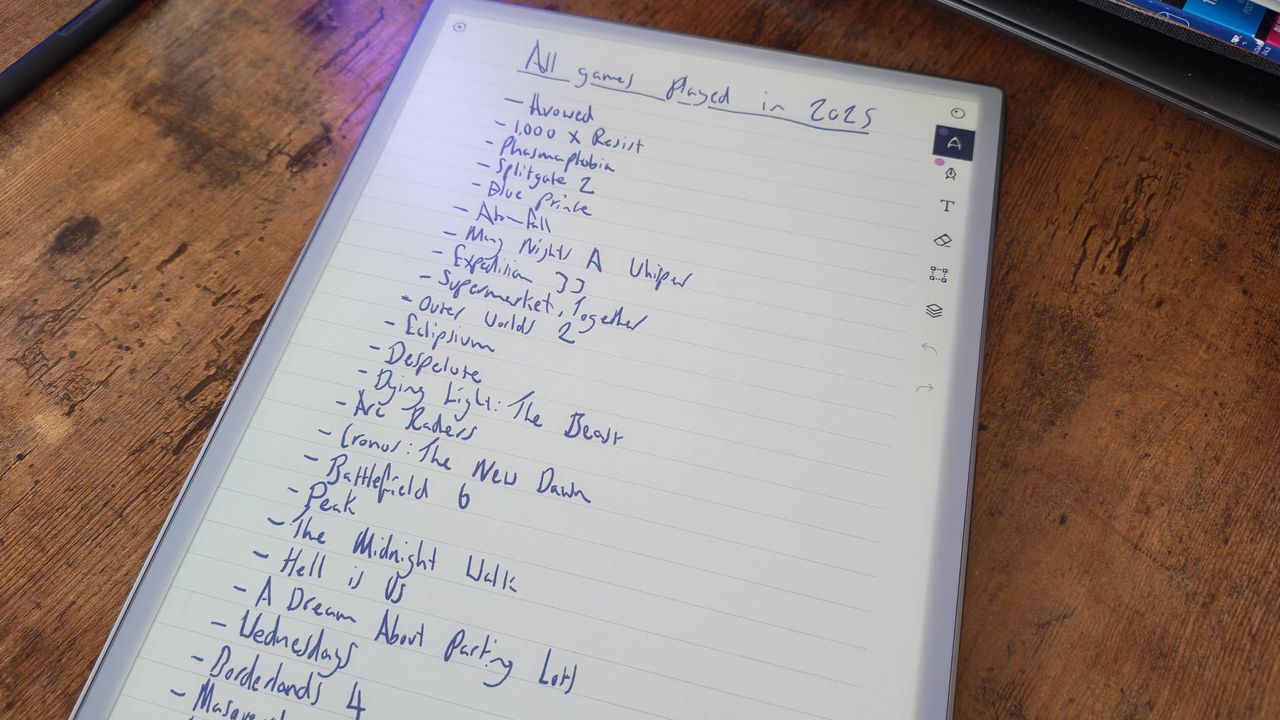 All games played in 2025
- Avowed
- 1,000 X Resist
- Phasmaphobia
- Splitgate 2
- Blue Prince
- Atomfall
- Many Nights A Whisper
- Expedition 33
- Supermarket Together
- Outer Worlds 2
- Eclipsium
- Despelote
- Dying Light: The Beast
- Arc Raiders
- Cronos: The New Dawn
- Battlefield 6
- Peak
- The Midnight Walk
- Hell is Us
- A Dream About Parking Lots
- Wednesdays
- Borderlands 4